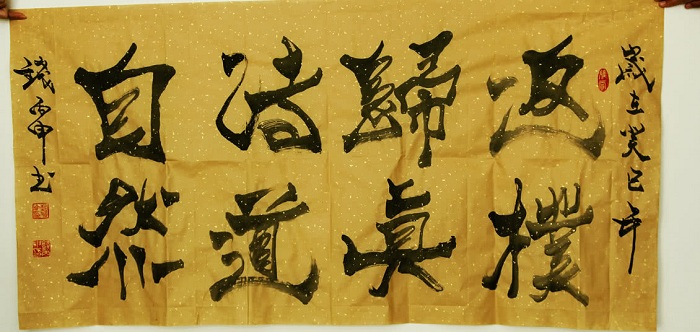 歲在癸巳年
返樸
歸真
道
自然
錢 书